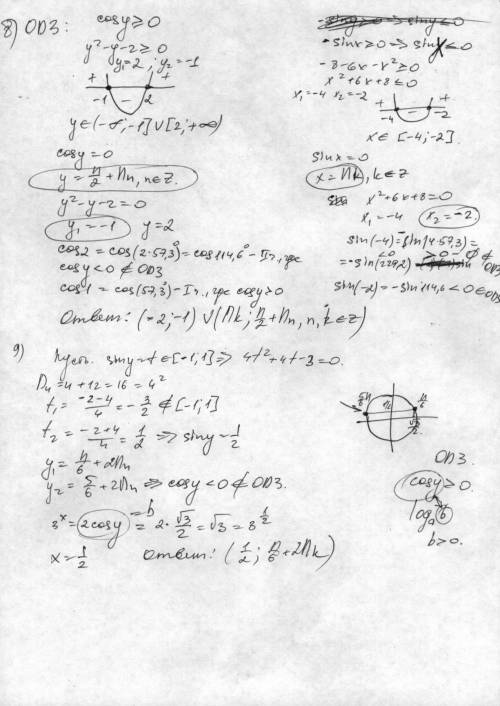 8) ОДЗ:
cosy ≥ 0
y²-y-2 ≥ 0
y₁=2, y₂=-1
+ - +
-1 2
y∈(-∞;-1]∪[2;+∞)
cosy = 0
y = π/2 + πn, n∈z.
y²-y-2=0
y₁=-1 y=2
cos2 = cos(2·57,3°) = cos114,6° - II ч, где
cosy<0 ∉ ОДЗ
cos1 = cos(57,3°) - I ч, где cosy>0
-siny ≥ 0 => siny ≤ 0
-sinx ≥ 0 => sinx ≤ 0
-8-6x-x² ≥ 0
x²+6x+8 ≤ 0
x₁=-4 x₂=-2
+ - +
-4 -2
x∈[-4;-2].
sinx=0
x=πk, k∈z
x²+6x+8=0
x₁=-4 x₂=-2.
sin(-4)=-sin(4·57,3)=
=-sin(229,2) >0 - ∉ ОДЗ
sin(-2)=-sin114,6<0 ∈ ОДЗ
Ответ: (-2;-1) ∪ (πk; π/2+πn, n,k∈z)
9) Пусть siny=t∈[-1;1] => 4t²+4t-3=0.
D₄=4+12=16=4²
t₁ = (-2-4)/4 = -3/2 ∉ [-1;1]
t₂ = (-2+4)/4 = 1/2 => siny=1/2
y₁ = π/6 + 2πn
y₂ = 5π/6 + 2πn => cosy<0 ∉ ОДЗ.
3ˣ = 2cosy = b = 2·√3/2 = √3 = 3^(1/2)
x = 1/2 Ответ: (1/2; π/6+2πk)
5π/6 π/6
√3/2
ОДЗ.
cosy>0.
logₐb
b>0.